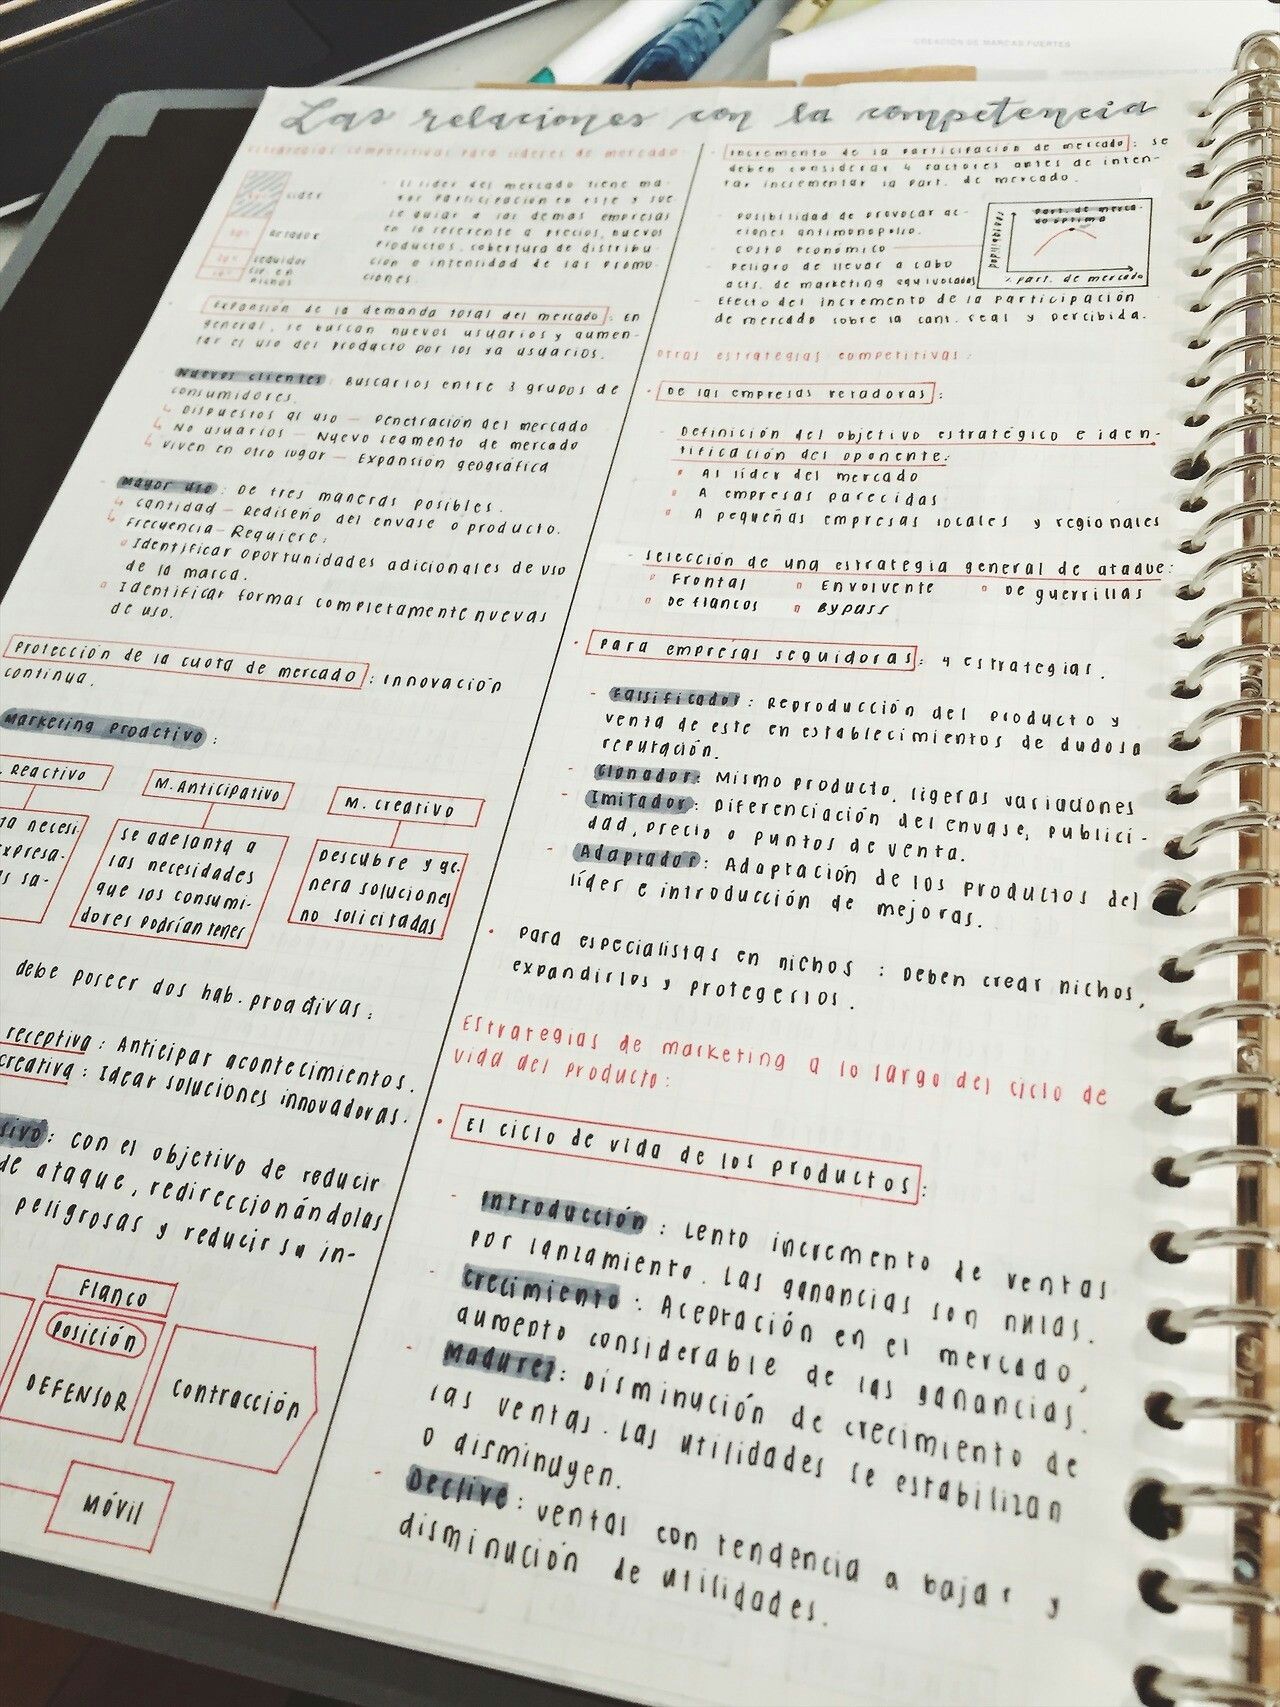 CREACIÓN DE MARCAS FUERTES
Las relaciones con la competencia
Estrategias competitivas para líderes de mercado
Líder
Retador
Seguidor
esp. en
nichos
El líder del mercado tiene ma-
yor participación en este y sue-
le guiar a las demás empresas
en lo referente a precios, nuevos
productos, cobertura de distribu-
ción o intensidad de las promo-
ciones.
Expansión de la demanda total del mercado: En
general, se buscan nuevos usuarios y aumen-
tar el uso del producto por los ya usuarios.
Nuevos clientes: Buscarlos entre 3 grupos de
consumidores.
Dispuestos al uso — Penetración del mercado
No usuarios — Nuevo segmento de mercado
Viven en otro lugar — Expansión geográfica
Mayor uso: De tres maneras posibles.
Cantidad — Rediseño del envase o producto.
Frecuencia — Requiere:
Identificar oportunidades adicionales de uso
de la marca.
Identificar formas completamente nuevas
de uso.
Protección de la cuota de mercado: Innovación
continua.
Marketing proactivo:
Reactivo
M. Anticipativo
M. Creativo
necesi-
expresa-
sa-
Se adelanta a
las necesidades
que los consumi-
dores podrían tener
Descubre y ge-
nera soluciones
no solicitadas
debe poseer dos hab. proactivas:
receptiva: Anticipar acontecimientos.
creativa: Idear soluciones innovadoras.
con el objetivo de reducir
de ataque, redireccionándolas
peligrosas y reducir su in-
Flanco
Posición
DEFENSOR
Contracción
Móvil
Incremento de la participación de mercado: se
deben considerar 4 factores antes de inten-
tar incrementar la part. de mercado.
Posibilidad de provocar ac-
ciones antimonopolio.
Costo económico
Peligro de llevar a cabo
acts. de marketing equivocadas
Efecto del incremento de la participación
de mercado sobre la cant. real y percibida.
Part. de merca-
do óptima
% part. de mercado
Otras estrategias competitivas:
De las empresas retadoras:
Definición del objetivo estratégico e iden-
tificación del oponente:
Al líder del mercado
A empresas parecidas
A pequeñas empresas locales y regionales
Selección de una estrategia general de ataque:
Frontal Envolvente De guerrillas
De flancos Bypass
Para empresas seguidoras: 4 estrategias.
Falsificador: Reproducción del producto y
venta de este en establecimientos de dudosa
reputación.
Clonador: Mismo producto, ligeras variaciones
Imitador: Diferenciación del envase, publici-
dad, precio o puntos de venta.
Adaptador: Adaptación de los productos del
líder e introducción de mejoras.
Para especialistas en nichos: Deben crear nichos,
expandirlos y protegerlos.
Estrategias de marketing a lo largo del ciclo de
vida del producto:
El ciclo de vida de los productos:
Introducción: Lento incremento de ventas
por lanzamiento. Las ganancias son nulas.
Crecimiento: Aceptación en el mercado,
aumento considerable de las ganancias.
Madurez: Disminución de crecimiento de
las ventas. Las utilidades se estabilizan
o disminuyen.
Declive: Ventas con tendencia a bajar y
disminución de utilidades.